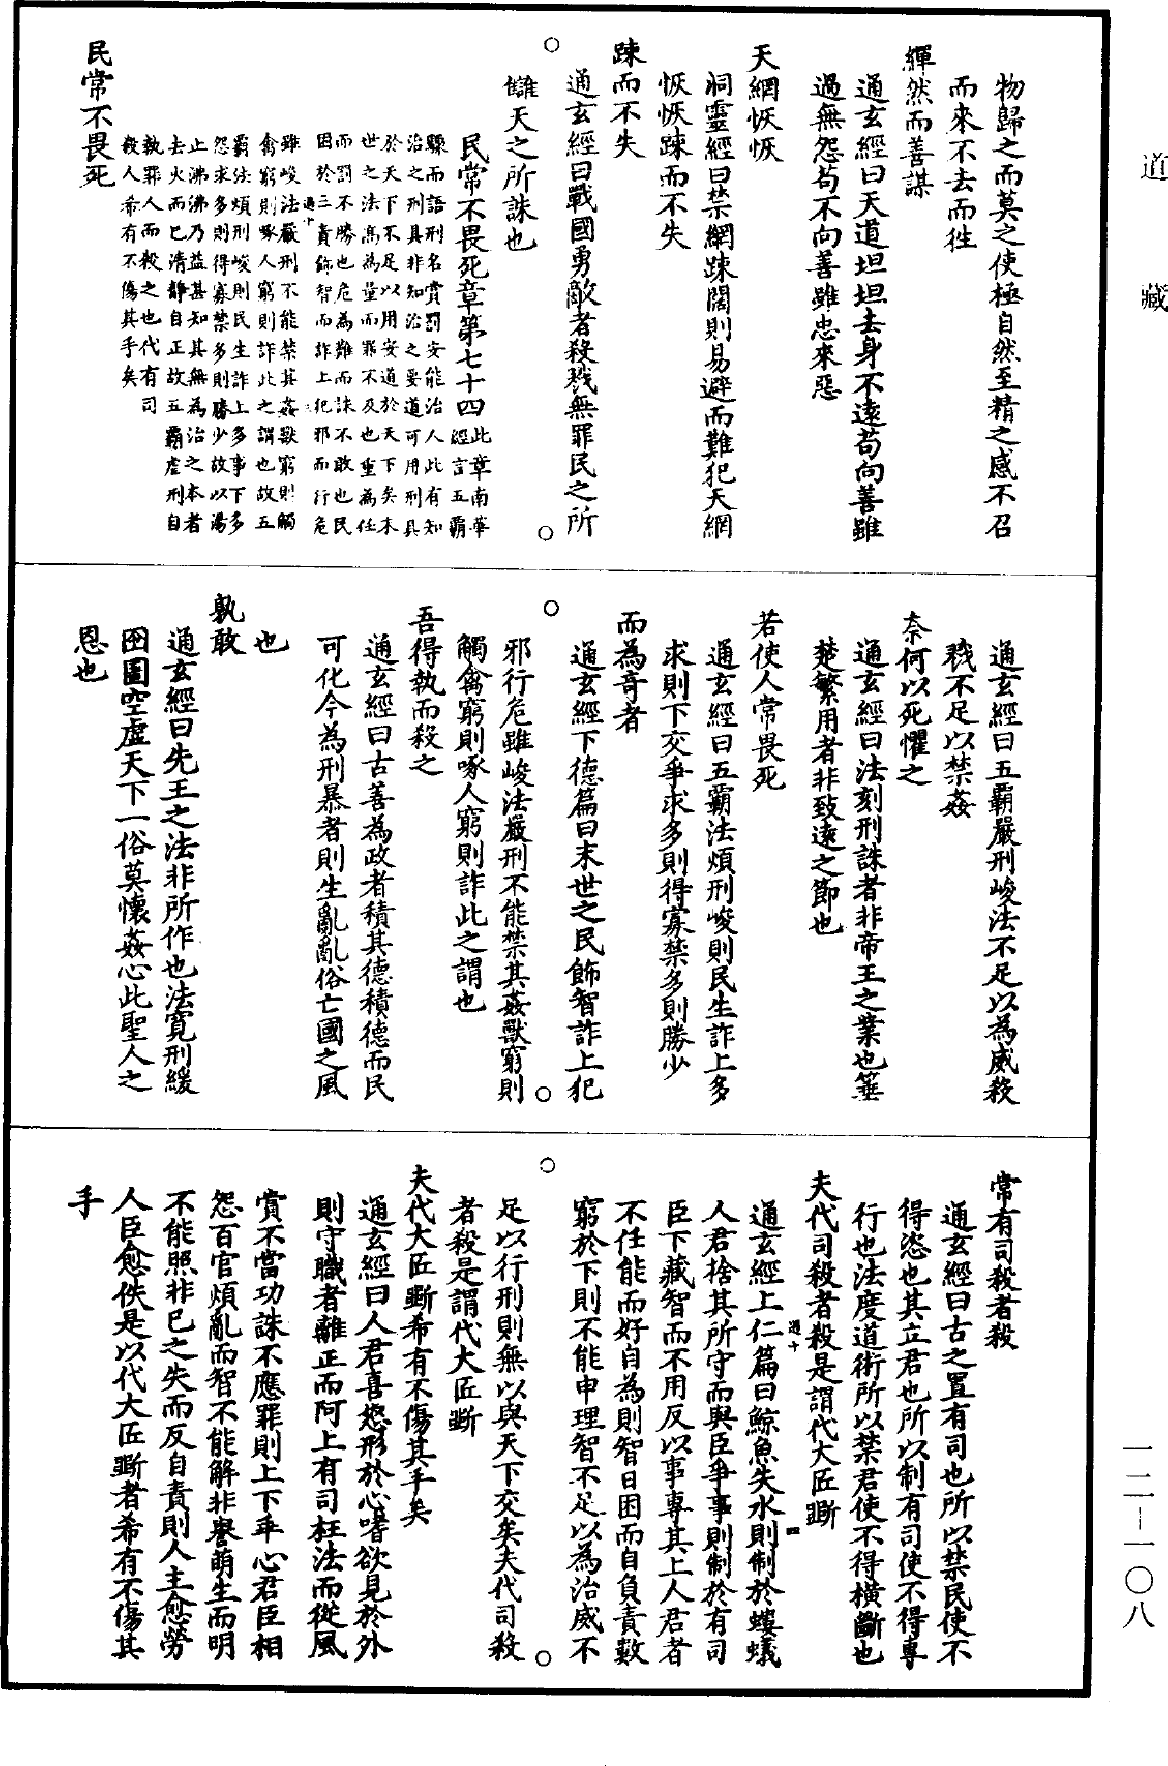 道藏
物歸之而莫之使極自然至精之感不召
而來不去而徃
繟然而善謀
通玄經曰天道坦坦去身不遠苟向善雖
過無怨苟不向善雖忠來惡
天網恢恢
洞靈經曰禁網踈闊則易避而難犯天網
恢恢踈而不失
踈而不失
通玄經曰戰國勇敵者殺戮無罪民之所
讎天之所誅也
民常不畏死章第七十四
此章南華
經言五霸
驟而語刑名賞罰安能治人此有知
治之刑具非知治之要道可用刑具
於天下不足以用安道於天下矣末
世之法高為量而罪不及也重為任
而罰不勝也危為難而誅不敢也民
困於三責飾智而詐上犯邪而行危
雖峻法嚴刑不能禁其姦獸窮則觸
禽窮則啄人窮則詐此之謂也故五
霸法煩刑峻則民生詐上多事下多
怨求多則得寡禁多則勝少故以湯
止沸沸乃益甚知其無為治之本者
去火而已清靜自正故五霸虐刑自
執罪人而殺之也代有司
殺人希有不傷其手矣
民常不畏死
通玄經曰五霸嚴刑峻法不足以為威殺
戮不足以禁姦
奈何以死懼之
通玄經曰法刻刑誅者非帝王之業也箠
楚繁用者非致遠之節也
若使人常畏死
通玄經曰五霸法煩刑峻則民生詐上多
求則下交爭求多則得寡禁多則勝少
而為奇者
通玄經下德篇曰末世之民飾智詐上犯
邪行危雖峻法嚴刑不能禁其姦獸窮則
觸禽窮則啄人窮則詐此之謂也
吾得執而殺之
通玄經曰古善為政者積其德積德而民
可化今為刑暴者則生亂亂俗亡國之風
也
孰敢
通玄經曰先王之法非所作也法寬刑緩
囹圄空虛天下一俗莫懷姦心此聖人之
恩也
常有司殺者殺
通玄經曰古之置有司也所以禁民使不
得恣也其立君也所以制有司使不得專
行也法度道術所以禁君使不得橫斷也
夫代司殺者殺是謂代大匠斲
通玄經上仁篇曰鯨魚失水則制於螻蟻
人君捨其所守而與臣爭事則制於有司
臣下藏智而不用反以事專其上人君者
不任能而好自為則智日困而自負責數
窮於下則不能申理智不足以為治威不
足以行刑則無以與天下交矣夫代司殺
者殺是謂代大匠斲
夫代大匠斲希有不傷其手矣
通玄經曰人君喜怒形於心嗜欲見於外
則守職者離正而阿上有司枉法而從風
賞不當功誅不應罪則上下乖心君臣相
怨百官煩亂而智不能解非譽萌生而明
不能照非已之失而反自責則人主愈勞
人臣愈佚是以代大匠斲者希有不傷其
手
一二－一〇八